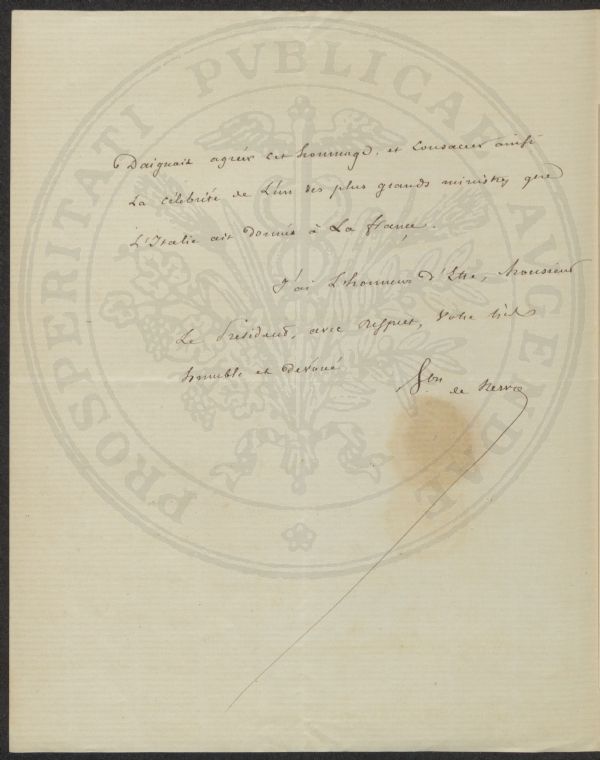 Daignait agréer cet hommage. et consacrer ainsi
La célébrité de L'un des plus grands ministres que
L'Italie ait donnés à La france.
J'ai L'honneur d'Etre, Monsieur
Le Président, avec respect, Votre très
humble et dévoué
Bon de Nervo
PROSPERITATI PVBLICAE AVGENDAE